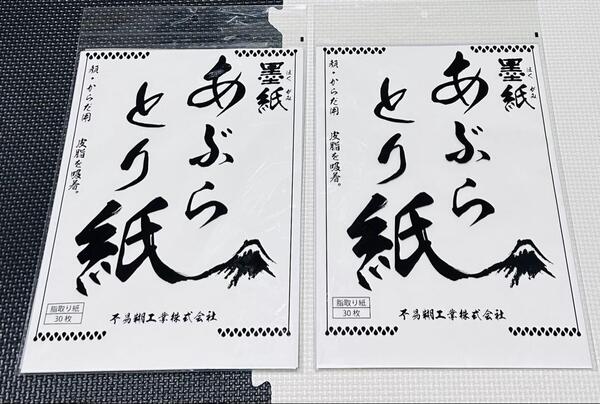 墨紙
あぶら
とり
紙
顔・からだ用　皮脂を吸着。
脂取り紙
30枚
不易糊工業株式会社
墨紙
あぶら
とり
紙
顔・からだ用　皮脂を吸着。
脂取り紙
30枚
不易糊工業株式会社